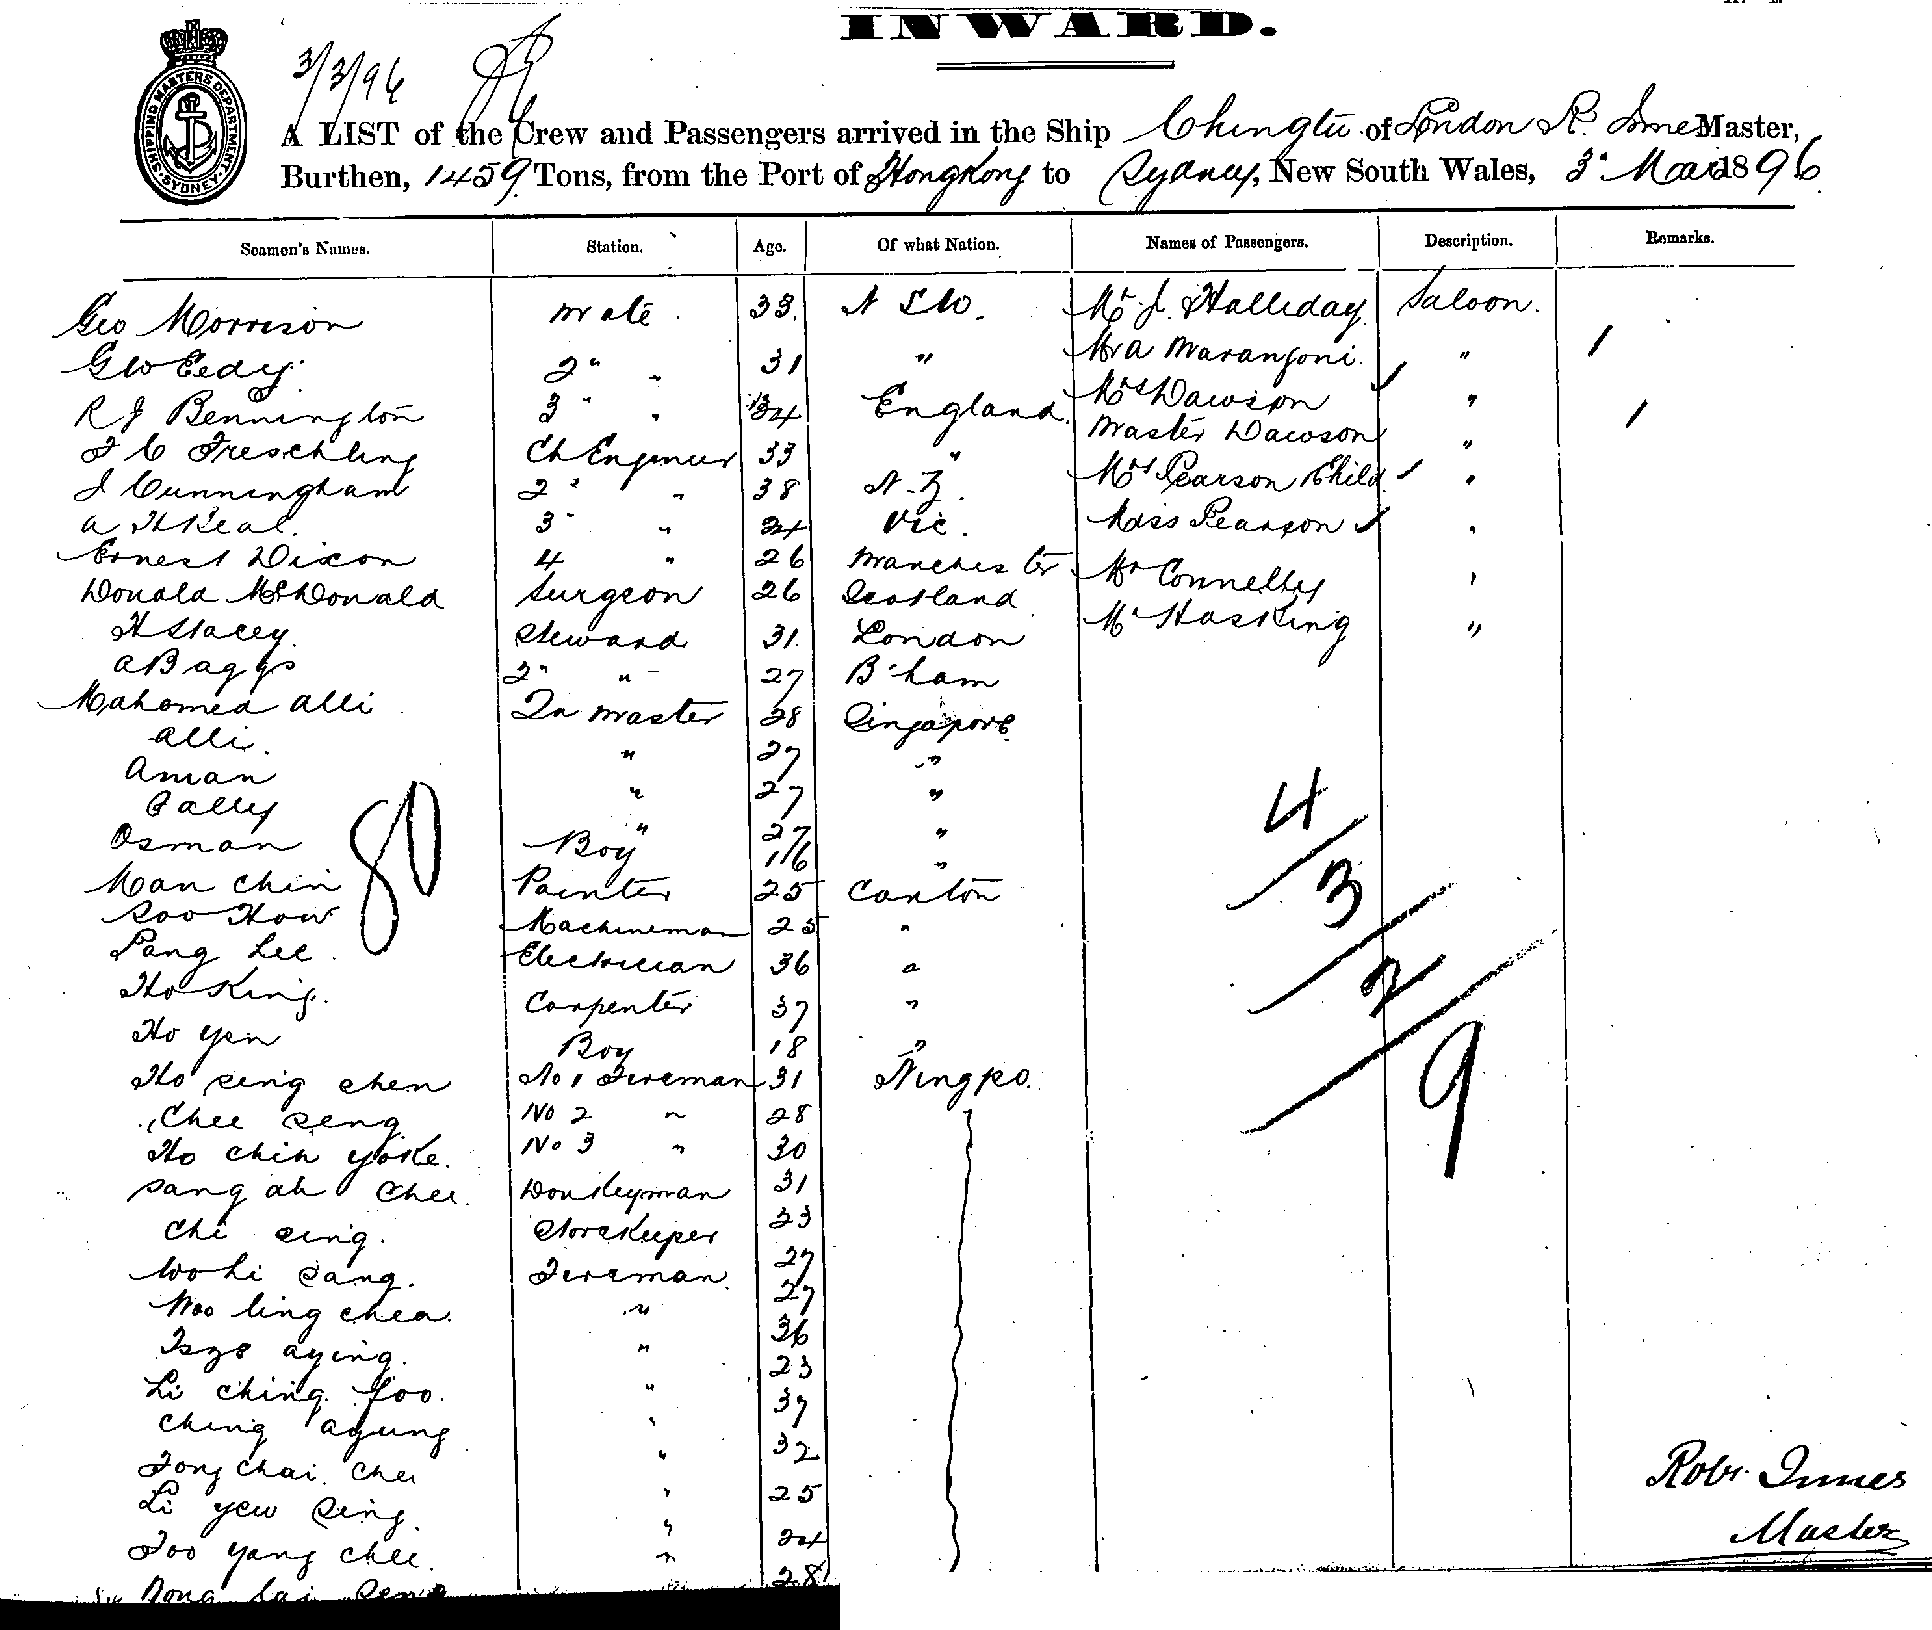 INWARD.
3/3/96
SHIPPING MASTERS DEPARTMENT SYDNEY
A LIST of the Crew and Passengers arrived in the Ship Chingtu of London R. Innes Master,
Burthen, 1459 Tons, from the Port of HongKong to Sydney, New South Wales, 3 Mar 1896
Seamen's Names. Station. Age. Of what Nation. Names of Passengers. Description. Remarks.
Geo Morrison mate. 33. N S W. Mr J. Halliday Saloon.
Geo Eedy 2" " 31 " Mr A Marangoni " 1
R J Bennington 3" " 34 England Mrs Dawson " 1
Ch Engineer 33 " Master Dawson "
J Cunningham 2" " 38 N.Z. Mrs Pearson Child "
3" " 24 Vic. Miss Pearson "
Ernest Dixon 4 " 26 Manchester Mr Connelly "
Donald McDonald Surgeon 26 Scotland Mr Hosking "
H Stacey. Steward 31. London
A Baggs 2" " 27 B'ham
Mahomed Alli Qr Master 28 Singapore
Alli. " 27 "
Aman " 27 "
Sally " 27 "
Osman Boy 16 "
Man Chin Painter 25 Canton
Soo How Machineman 25 "
Pang Lee. Electrician 36 "
Ho King. Carpenter 37 "
Ho Yen Boy 18 "
Ho Seng Chen No 1 Fireman 31 Ningpo.
Chee Seng No 2 " 28
Ho Chin Yoke. No 3 " 30
Sang Ah Chee Donkeyman 31
Chi Sing. Storekeeper 23
Wo Li Sang. Fireman 27
Woo Ling Chea. " 27
Tsze Aying. " 36
Li Ching Foo. " 23
Ching Ayung " 37
Tong Chai Chee " 32
Li Yew Sing. " 25
Foo Yang Chee. " 24
Dong Lai Seng " 28
80
4
3
2
9
Robt. Innes
Master